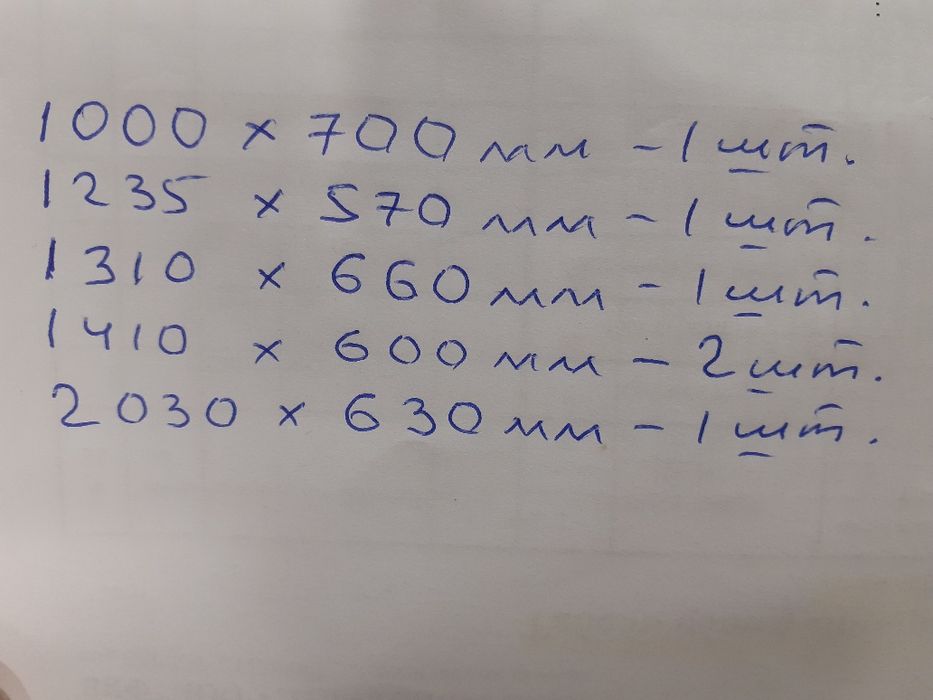 1000 x 700 мм - 1 шт.
1235 x 570 мм - 1 шт.
1310 x 660 мм - 1 шт.
1410 x 600 мм - 2 шт.
2030 x 630 мм - 1 шт.